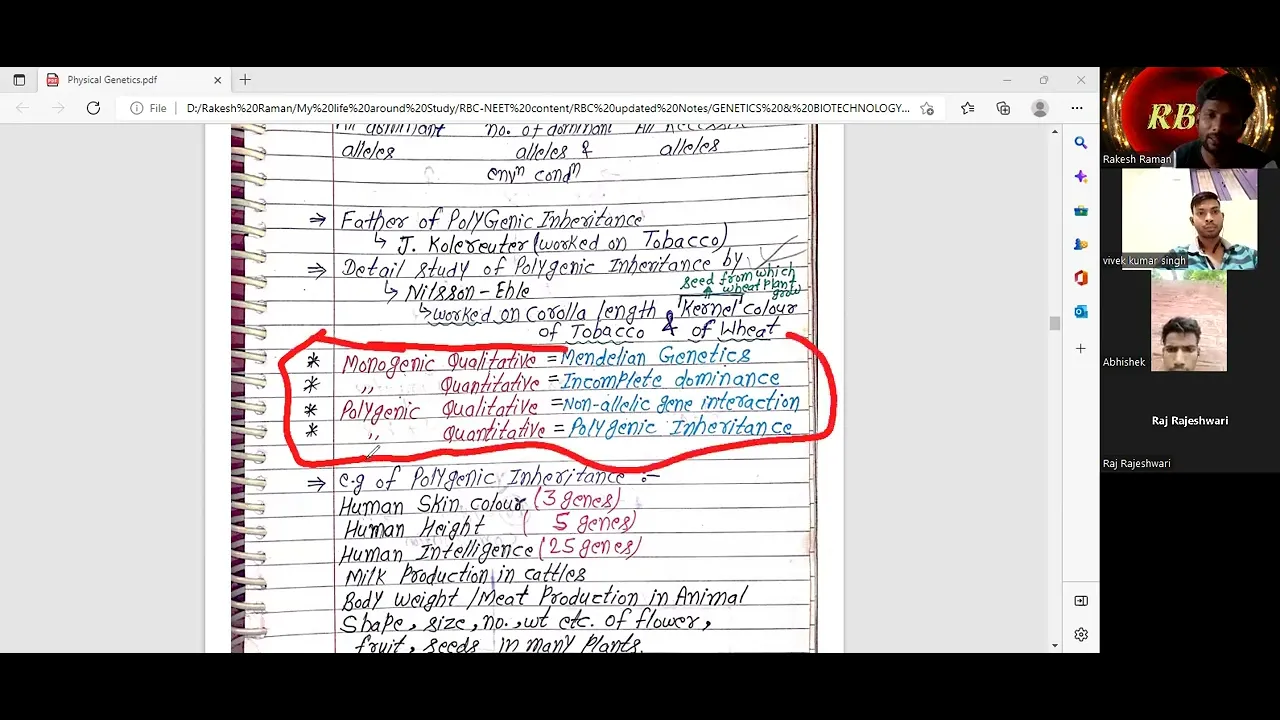 Physical Genetics.pdf
File
D:/Rakesh%20Raman/My%20life%20around%20Study/RBC-NEET%20content/RBC%20updated%20Notes/GENETICS%20&%20BIOTECHNOLOGY...
All dominant no. of dominant All recessive
alleles alleles & alleles
envⁿ condⁿ
⇒ Father of PolyGenic Inheritance
↳ J. Kolereuter (worked on Tobacco)
⇒ Detail study of Polygenic Inheritance by
↳ Nilsson-Ehle
seed from which
wheat plant
grow
↳ worked on Corolla length & Kernel colour
of Tobacco & of Wheat
* Monogenic Qualitative = Mendelian Genetics
* ,, Quantitative = Incomplete dominance
* Polygenic Qualitative = Non-allelic gene interaction
* ,, Quantitative = Polygenic Inheritance
⇒ e.g of Polygenic Inheritance :-
Human Skin colour (3 genes)
Human Height ( 5 genes)
Human Intelligence (25 genes)
Milk Production in cattles
Body weight /Meat Production in Animal
Shape, size, no., wt etc. of flower,
fruit, seeds in many plants.
RB
Rakesh Raman
vivek kumar singh
Abhishek
Raj Rajeshwari
Raj Rajeshwari